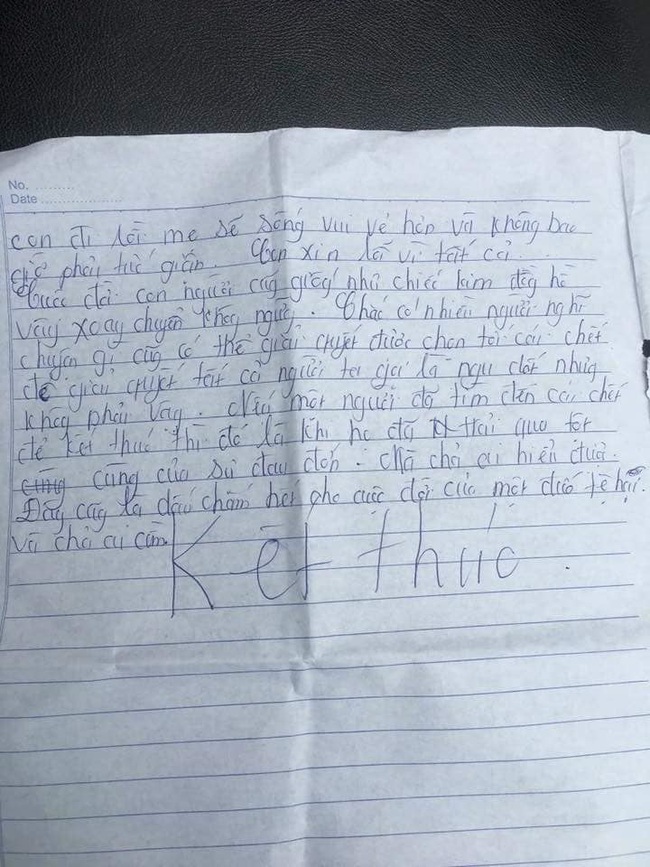 No. ..........
Date ....................
con đi rồi mẹ sẽ sống vui vẻ hơn và không bao
giờ phải tức giận. Con xin lỗi vì tất cả.
Cuộc đời con người cũg giốg như chiếc kim đồg hồ
vậy xoay chuyển khôg ngừg. Chắc có nhiều người nghĩ
chuyện gì cũg có thể giải quyết được chọn tới cái chết
để giải quyết tất cả người ta gọi là ngu dốt nhưg
khôg phải vậy. Nếu một người đã tìm đến cái chết
để kết thúc thì đó là khi họ đã trải qua tột
cùng của sự đau đớn. Mà chả ai hiểu được.
Đây cũg là dấu chấm hết cho cuộc đời của một đứa tệ hại.
và chả ai cần.
Kết thúc.